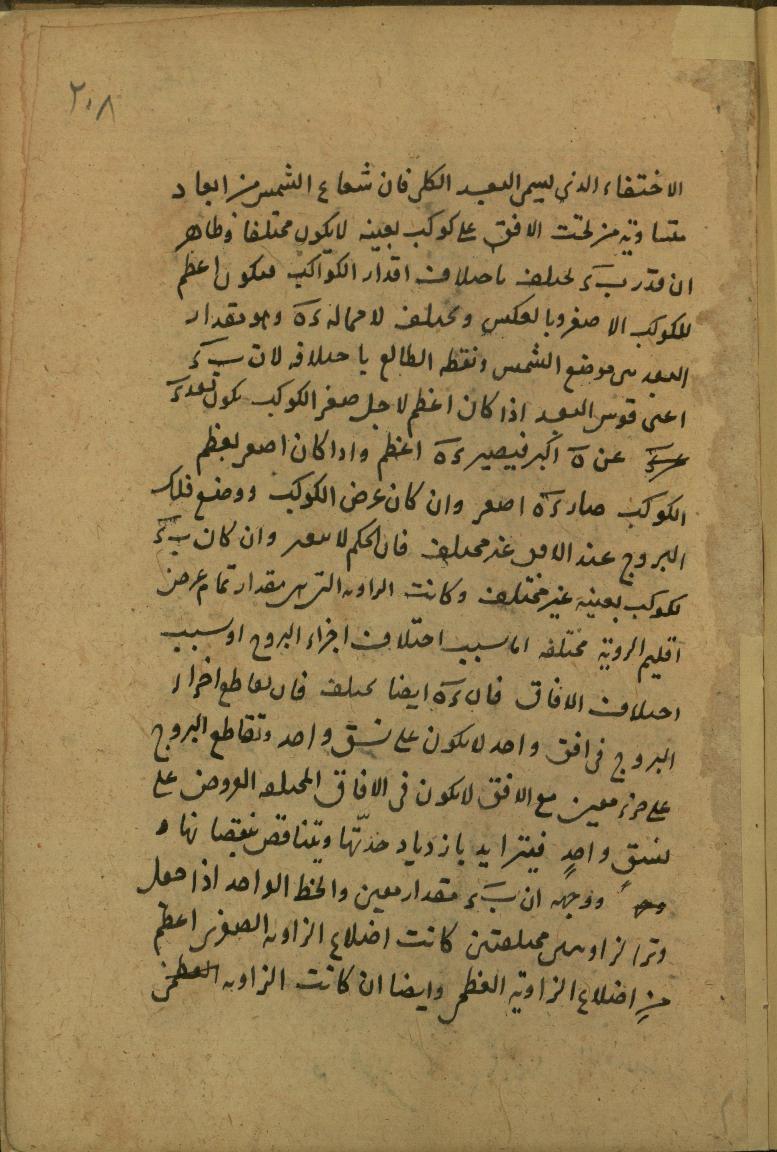 ٢٠٨
الاختفاء الذي يسمى البعد الكلي فان شعاع الشمس من ابعاد
متساوية من تحت الافق على كوكب بعينه لايكون مختلفا وظاهر
ان قدر بء يختلف باختلاف اقدار الكواكب فيكون اعظم
للكوكب الاصغر وبالعكس ويختلف لامحاله ءه وهو مقدار
البعد بين موضع الشمس ونقطه الطالع باختلافه لان بء
اعنى قوس البعد اذا كان اعظم لاجل صغر الكوكب يكون بعد ء
عن ه اكبر فيصير ءه اعظم واذا كان اصغر لعظم
الكوكب صار ءه اصغر وان كان عرض الكوكب ووضع فلك
البروج عند الافق غير مختلف فان الحكم لا يتغير وان كان بء
لكوكب بعينه غير مختلف وكانت الزاويه التي هى مقدار تمام عرض
اقليم الروية مختلفه اما بسبب اختلاف اجزاء البروج او بسبب
اختلاف الافاق فان ءه ايضا يختلف فان تقاطع اجزاء
البروج فى افق واحد لايكون على نسق واحد وتقاطع البروج
على جزء معين مع الافق لايكون فى الافاق المختلفه العروض على
نسق واحدٍ فيتزايد بازدياد حدّتها ويتناقص بنقصانها
ووجهه ان بء مقدار معين والخط الواحد اذا جعل
وتر الزاويتين مختلفتين كانت اضلاع الزاويه الصغرى اعظم
من اضلاع الزاوية العظمى وايضا ان كانت الزاويه العظمى